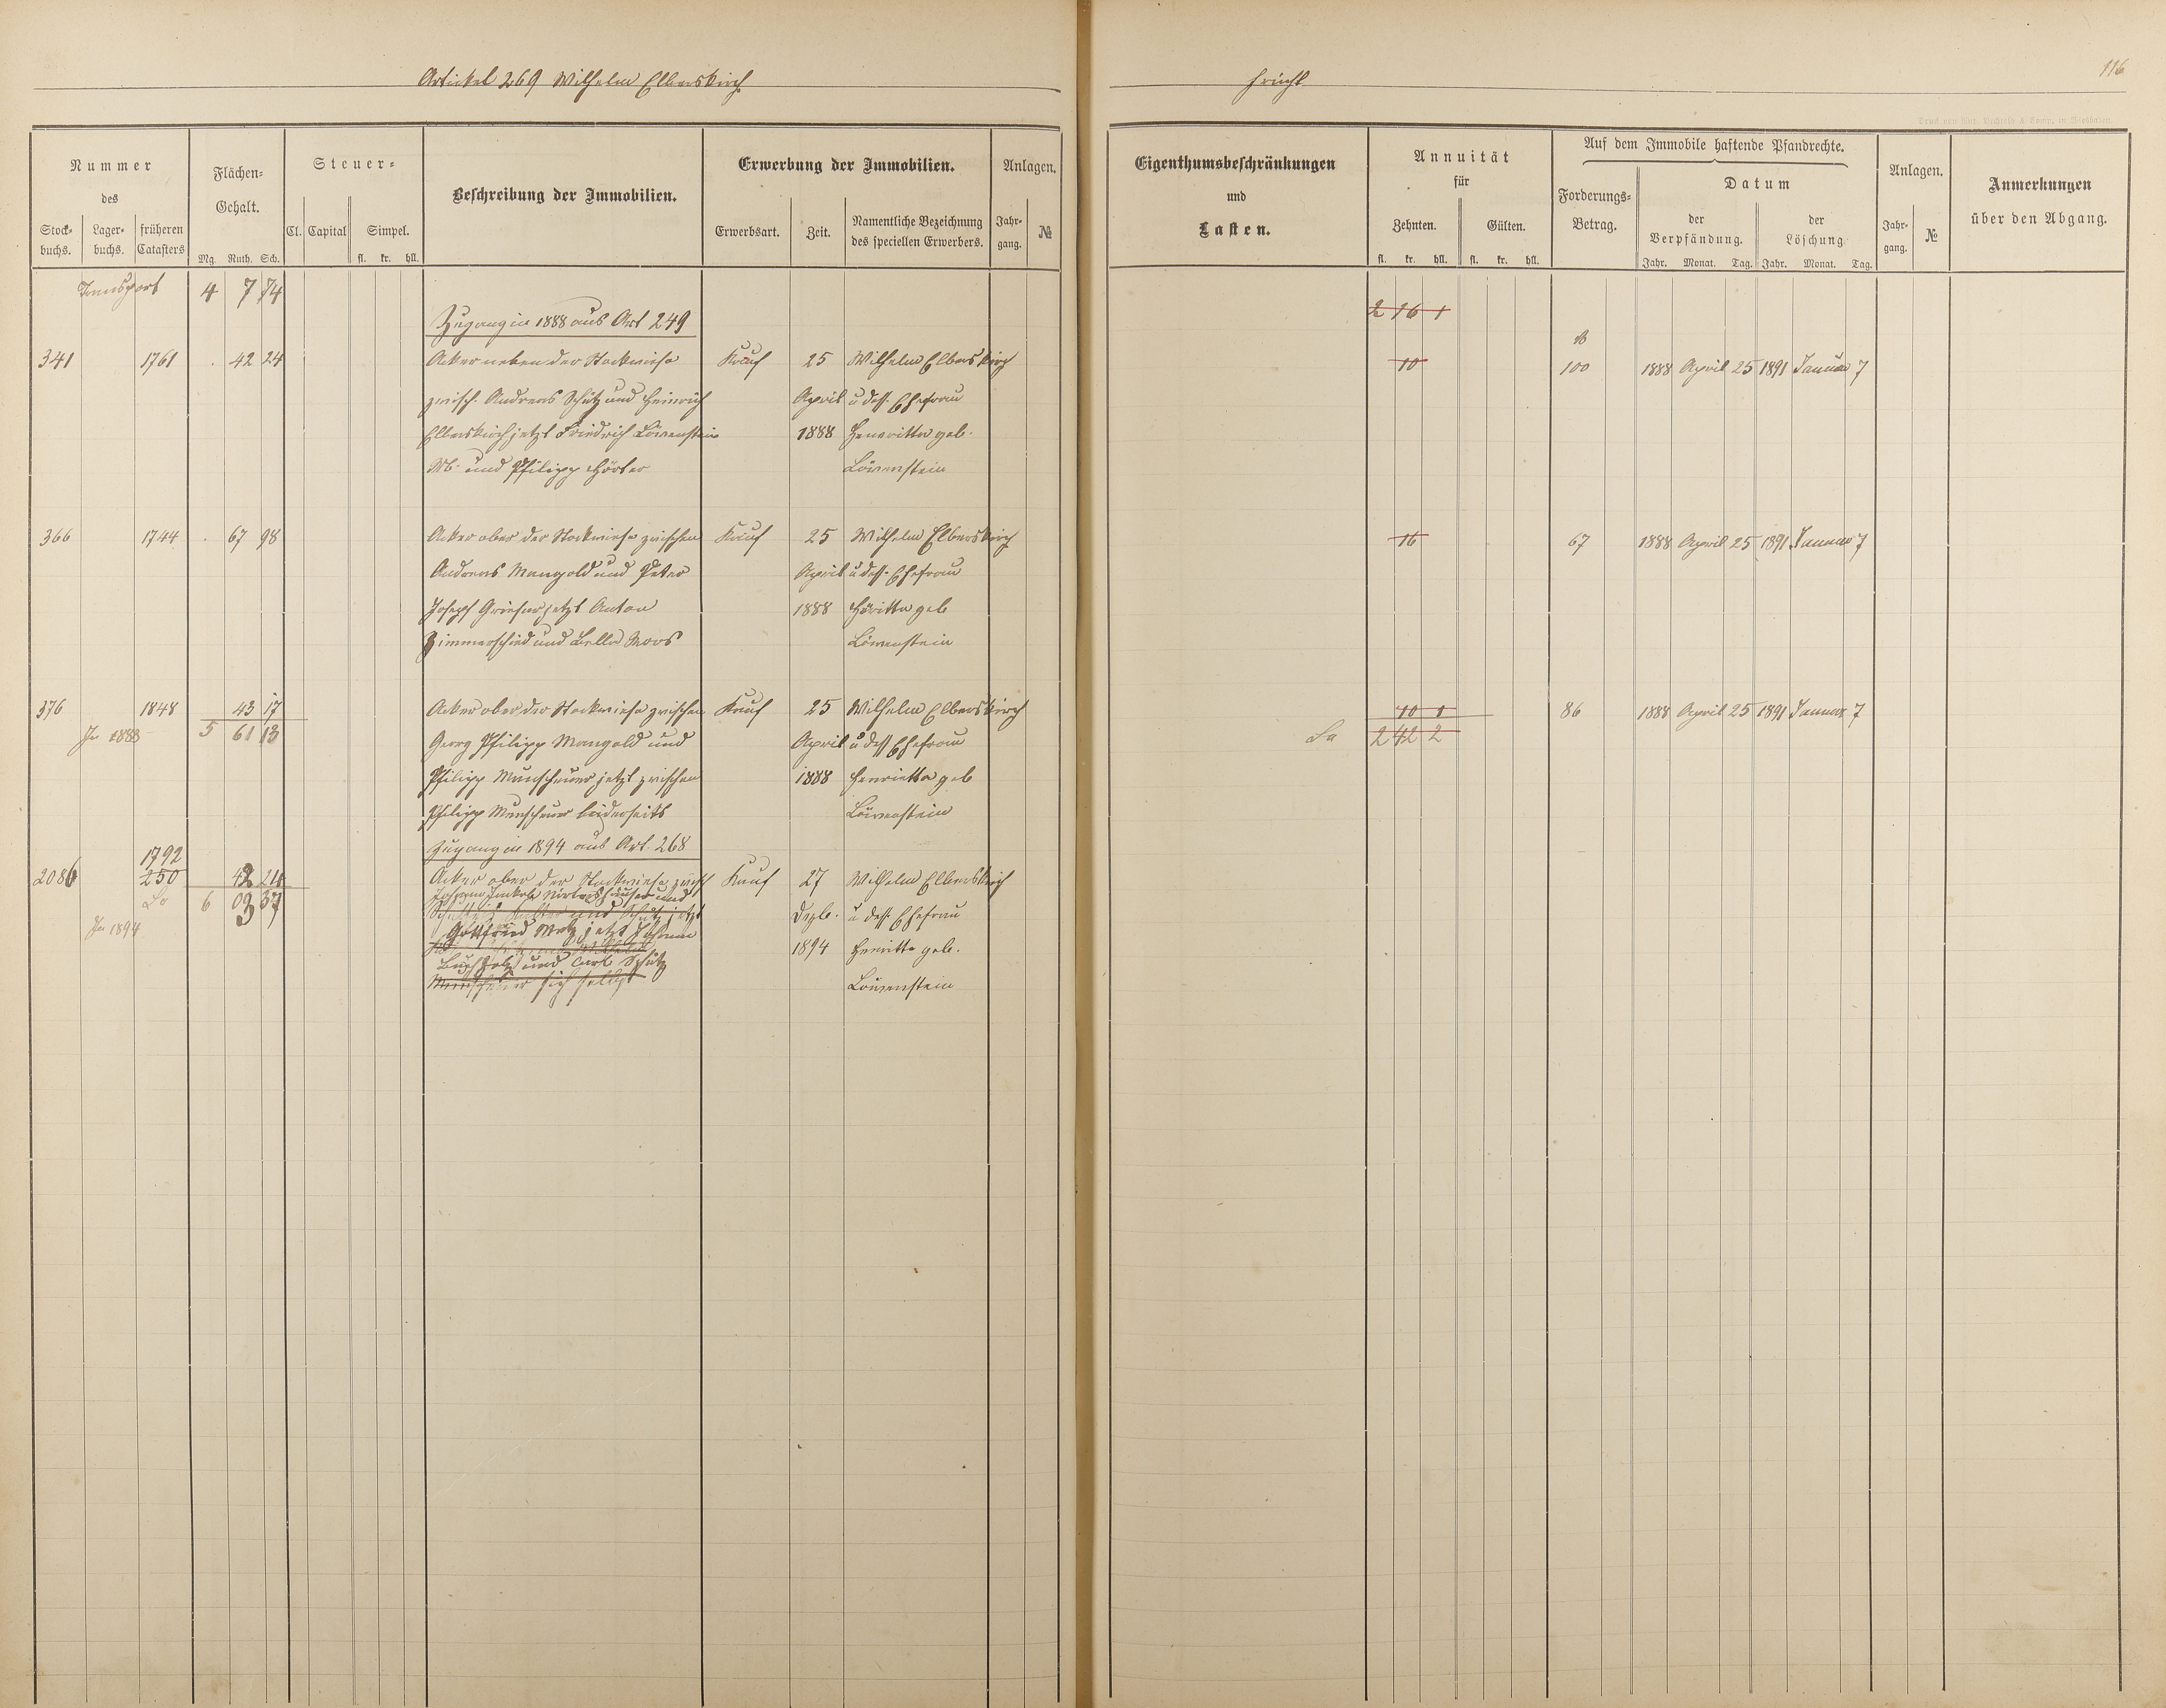 Artickel 269 Wilhelm Elberskirch
Frücht
116
Nummer
des
Stock-
buchs.
Lager-
buchs.
früheren
Catasters
Flächen-
Gehalt.
Mg. Ruth. Sch.
Steuer-
Cl. Capital Simpel.
fl. kr. hll.
Beschreibung der Immobilien.
Erwerbung der Immobilien.
Erwerbsart. Zeit.
Namentliche Bezeichnung
des speciellen Erwerbers.
Anlagen.
Jahr-
gang.
№
Eigenthumsbeschränkungen
und
Lasten.
Annuität
für
Zehnten. Gülten.
fl. kr. hll. fl. kr. hll.
Auf dem Immobile haftende Pfandrechte.
Forderungs-
Betrag.
Datum
der
Verpfändung.
der
Löschung.
Jahr. Monat. Tag. Jahr. Monat. Tag.
Anlagen.
Jahr-
gang.
№
Anmerkungen
über den Abgang.
Transport 4 7 74
2 16 1
Zugang in 1888 aus Art 249
341 1761 . 42 24 Acker neben der Stockwiese Kauf 25 Wilhelm Elberskirch 10 100 1888 April 25 1891 Januar 7
zwisch. Andreas Schütz und Heinrich April u dess. Ehefrau
Elberskirch jetzt Friedrich Löwenstein 1888 Henritta geb.
Wb. und Philipp Hörter Löwenstein
366 1744 . 67 98 Acker ober der Stockwiese zwischen Kauf 25 Wilhelm Elberskirch 16 67 1888 April 25 1891 Januar 7
Andreas Mangold und Peter April u dess. Ehefrau
Joseph Grieser jetzt Anton 1888 geb
Zimmerschied und Bella Moos Löwenstein
376 1848 43 17 Acker ober der Stockwiese zwischen Kauf 25 Wilhelm Elberskirch 10 1 86 1888 April 25 1891 Januar 7
In 1888 5 61 13 Georg Philipp Mangold und April u dess Ehefrau Sa 2 42 2
Philipp Munscheuer jetzt zwischen 1888 Henrietta geb
Philipp Munscheuer beiderseits Löwenstein
Zugang in 1894 aus Art. 268
1792
2086 250 42 24 Acker ober der Stockwiese zwisch Kauf 27 Wilhelm Elberskirch
Sa 6 03 37
und Schütz jetzt Dezb. u dess. Ehefrau
In 1894 Gottfried Metz jetzt Johann
1894 Henritta geb.
Buchholz und Carl Schütz
Munscheuer sich selbst Löwenstein